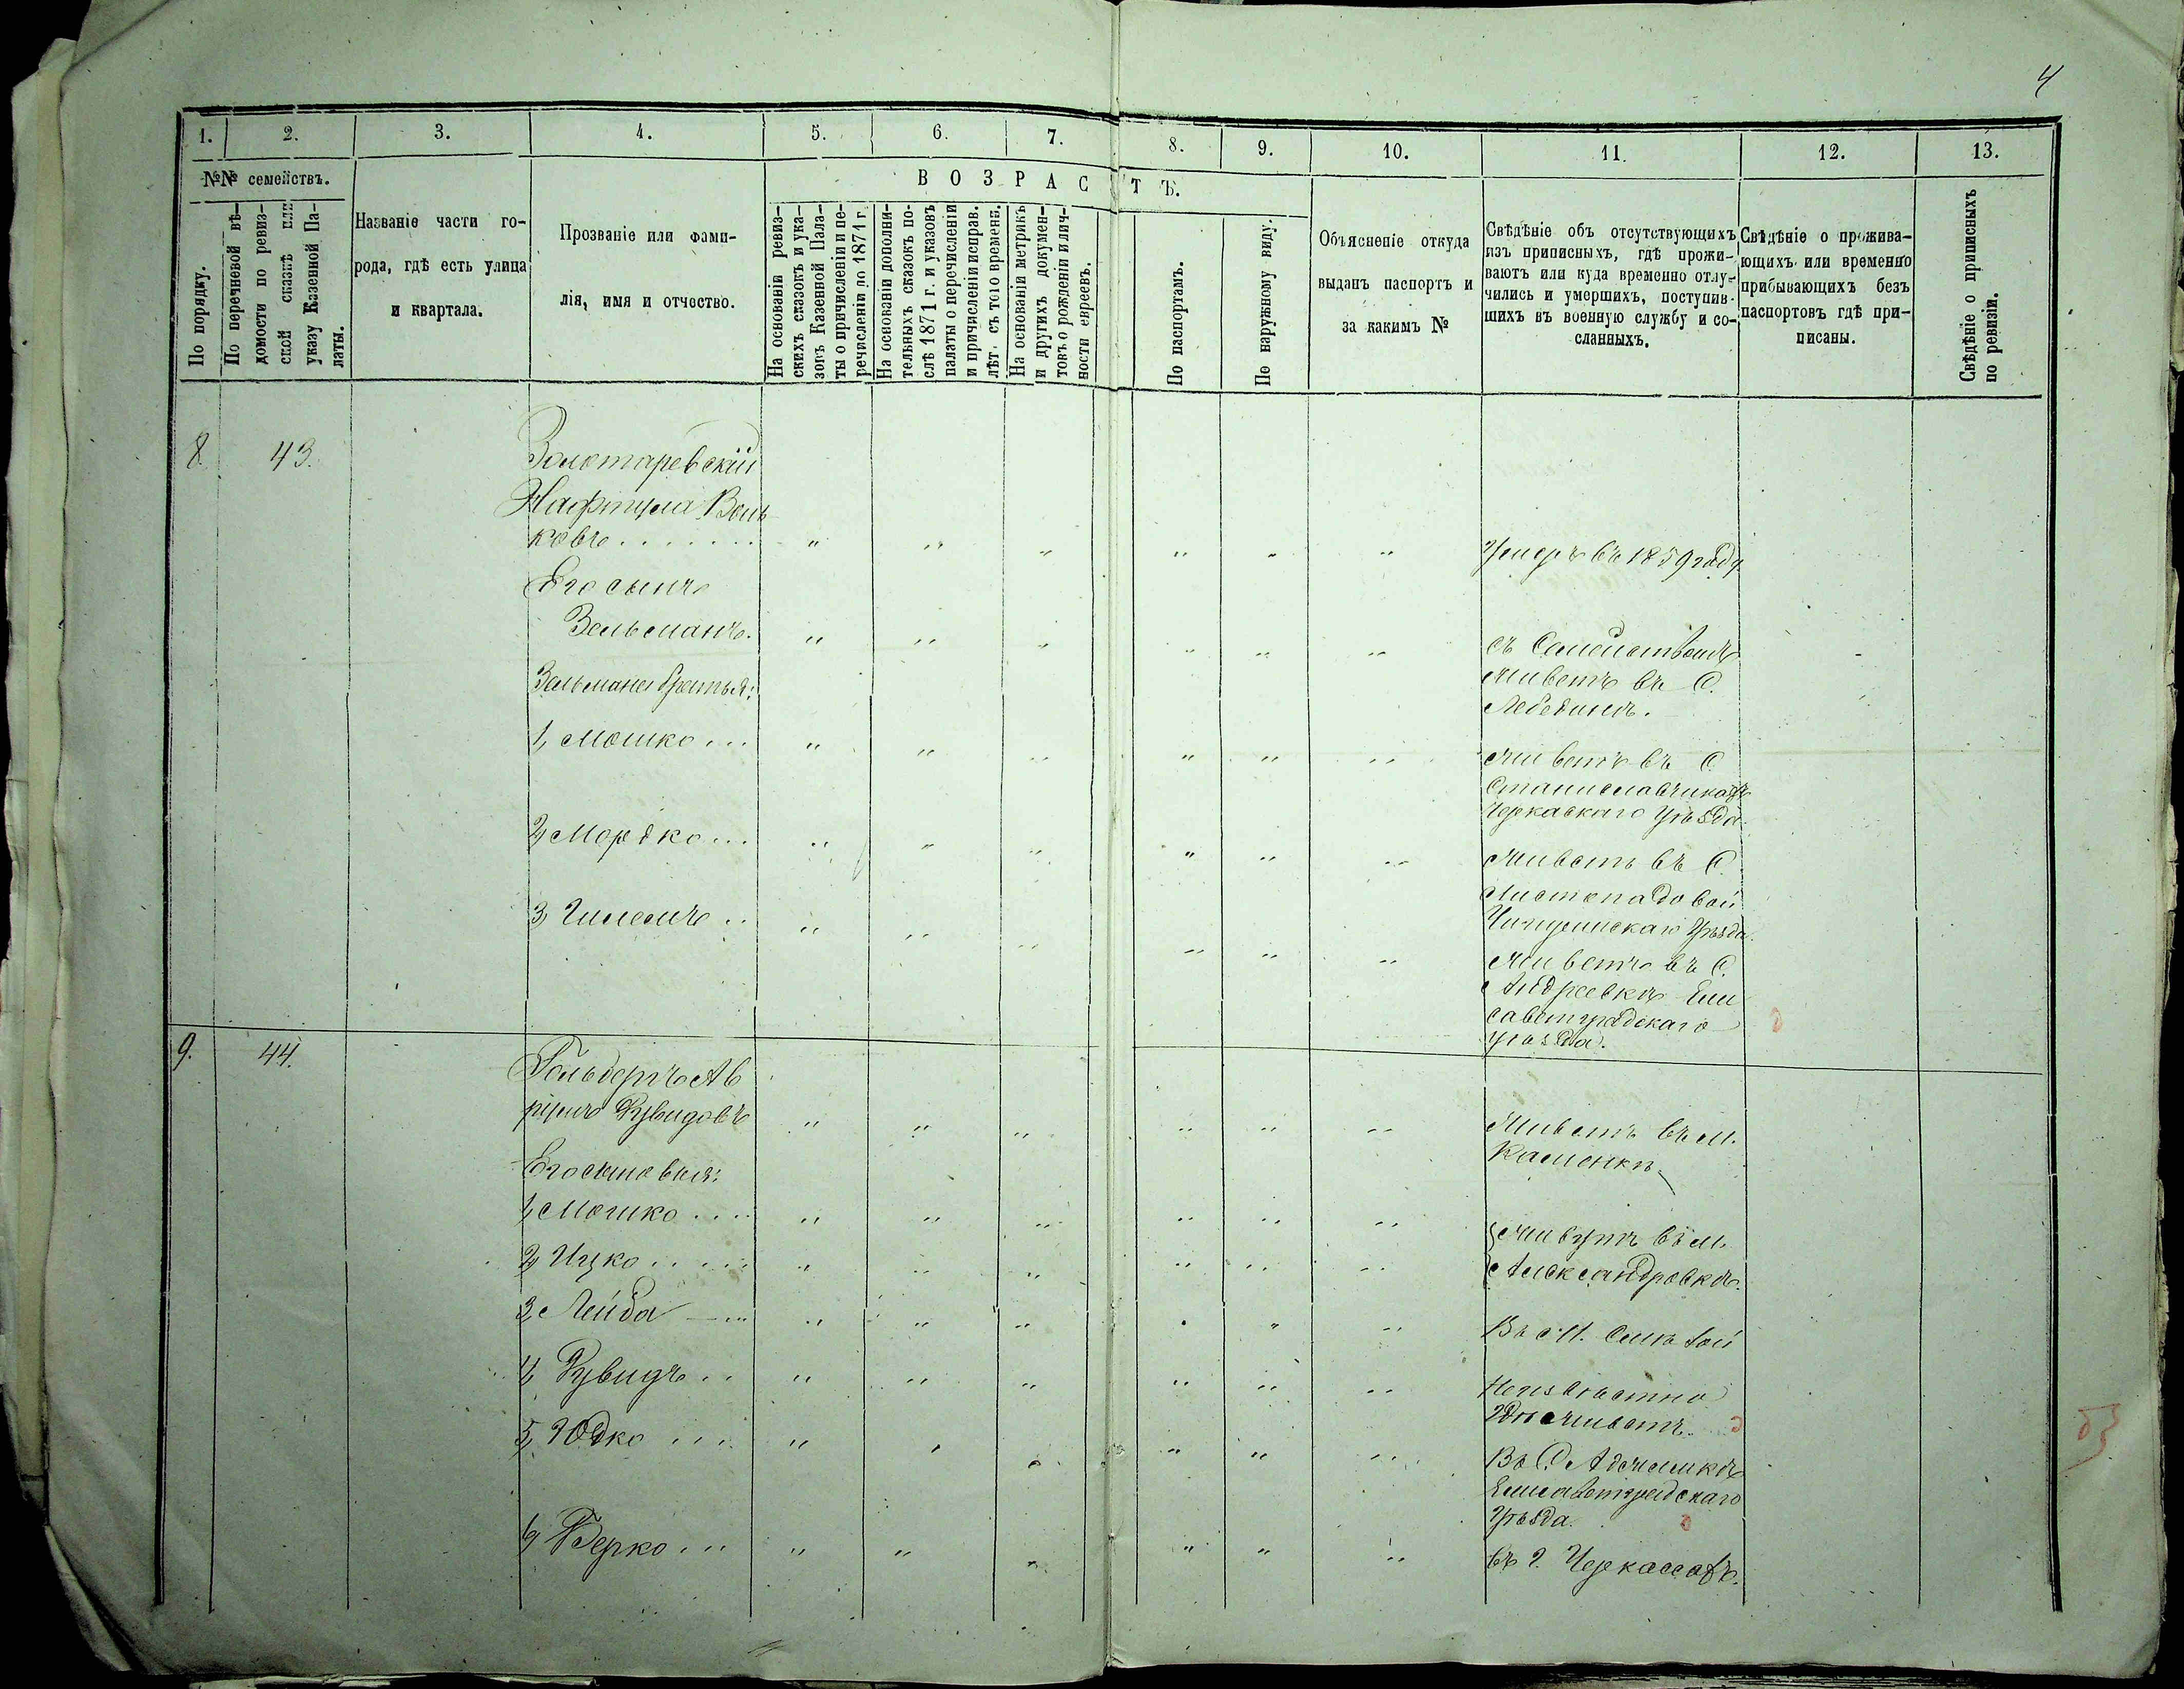 4
1. 2. 3. 4. 5. 6. 7. 8. 9. 10. 11. 12. 13.
№№ семействъ.
ВОЗРАСТЪ.
По порядку.
По перечневой вѣ-
домости по ревиз-
ской сказкѣ или
указу Казенной Па-
латы.
Названіе части го-
рода, гдѣ есть улица
и квартала.
Прозваніе или фами-
лія, имя и отчество.
На основаніи ревиз-
скихъ сказокъ и ука-
зовъ Казенной Пала-
ты о причисленіи и пе-
речисленіи до 1871 г.
На основаніи дополни-
тельныхъ сказокъ по-
слѣ 1871 г. и указовъ
палаты о перечисленіи
и причисленіи исправ.
лѣт. съ того времени.
На основаніи метрикъ
и другихъ докумен-
токъ о рожденіи и лич-
ности евреевъ.
По паспортамъ.
По наружному виду.
Объясненіе откуда
выданъ паспортъ и
за какимъ №
Свѣдѣніе объ отсутствующихъ
изъ приписныхъ, гдѣ прожи-
ваютъ или куда временно отлу-
чились и умершихъ, поступив-
шихъ въ военную службу и со-
сланныхъ.
Свѣдѣніе о прожива-
ющихъ или временно
прибывающихъ безъ
паспортовъ гдѣ при-
писаны.
Свѣдѣніе о приписныхъ
по ревизіи.
8. 43. Золотаревскій
Нафтула Воль
ковъ....... " " " " " " Умеръ въ 1859 году
Его сынъ
Зельманъ. " " " " " " съ Семействомъ
живетъ въ С.
Лебединѣ.
Зельмана братья:
1, Мошко... " " " " " " живетъ въ С.
Станиславчикахъ
Черкаскаго Уѣзда
2, Мордко... " " " " " " живетъ въ С.
Листопадовой
Чигиринскаго Уѣзда.
3, Шлемъ.. " " " " " " живетъ въ С.
Андреевкѣ Ели
саветградскаго
уѣзда.
9. 44. Гольберъ Ав
румъ Рувидовъ " " " " " " Живетъ въ м.
Каменкѣ
Его сыновья:
1, Мошко.... " " " " " " живутъ въ м.
2, Ицко..... " " " " " " Александровкѣ.
3, Лейба — ... " " " " " " Въ м. Смѣлой
4, Рувидъ.. " " " " " " Неизвѣстно
гдѣ живетъ.
5, Юдко... " " " " " " Въ С. Аджамкѣ
Елисаветградскаго
Уѣзда.
6, Берко... " " " " " " въ г. Черкассахъ.